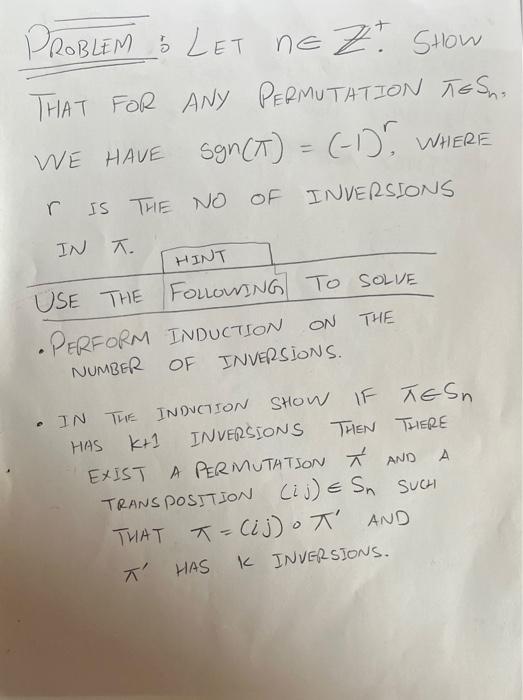 PROBLEM : LET n ∈ Z⁺. SHOW
THAT FOR ANY PERMUTATION π ∈ Sn,
WE HAVE sgn(π) = (-1)^r, WHERE
r IS THE NO OF INVERSIONS
IN π.
HINT
USE THE FOLLOWING TO SOLVE
• PERFORM INDUCTION ON THE
NUMBER OF INVERSIONS.
• IN THE INDUCTION SHOW IF π ∈ Sn
HAS K+1 INVERSIONS THEN THERE
EXIST A PERMUTATION π' AND A
TRANSPOSITION (i j) ∈ Sn SUCH
THAT π = (i j) ∘ π' AND
π' HAS K INVERSIONS.